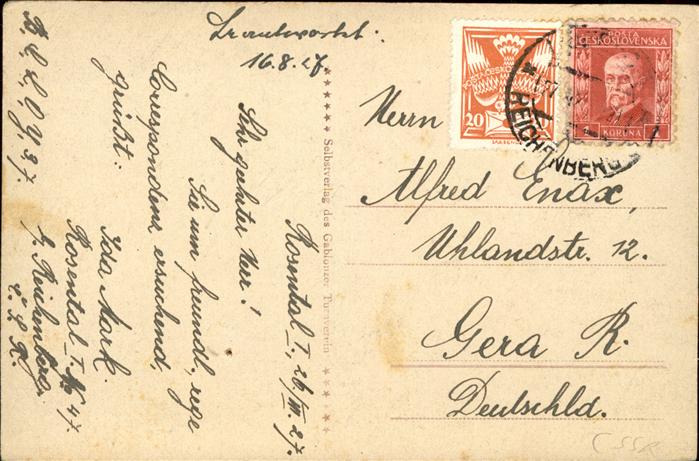 Beantwortet:
16.8.27
Rosental I., 26/VII. 27.
Sehr geehrter Herr!
Sie um freundl., rege
Correspondenz ersuchend,
grüßt:
Ida Mark.
Rosental I. No 47.
b. Reichenberg.
Č. S. R.
Selbstverlag des Gablonzer Turnverein
POSTA ČESKO
20
POŠTA
ČESKOSLOVENSKA
1 KORUNA 1
REICHENBERG
Herrn
Alfred Enax,
Uhlandstr. 12.
Gera R.
Deutschld.
CSSR